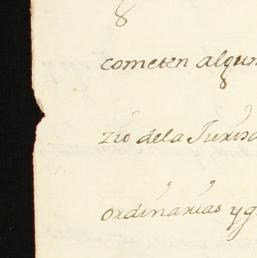 8
cometen algun
zio dela Juris
ordinarias y g